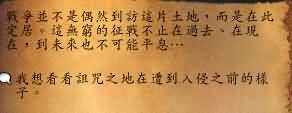 戰爭並不是偶然到訪這片土地，而是在此
定居。這無窮的征戰不止在過去、在現
在，到未來也不可能平息…
我想看看詛咒之地在遭到入侵之前的樣
子。